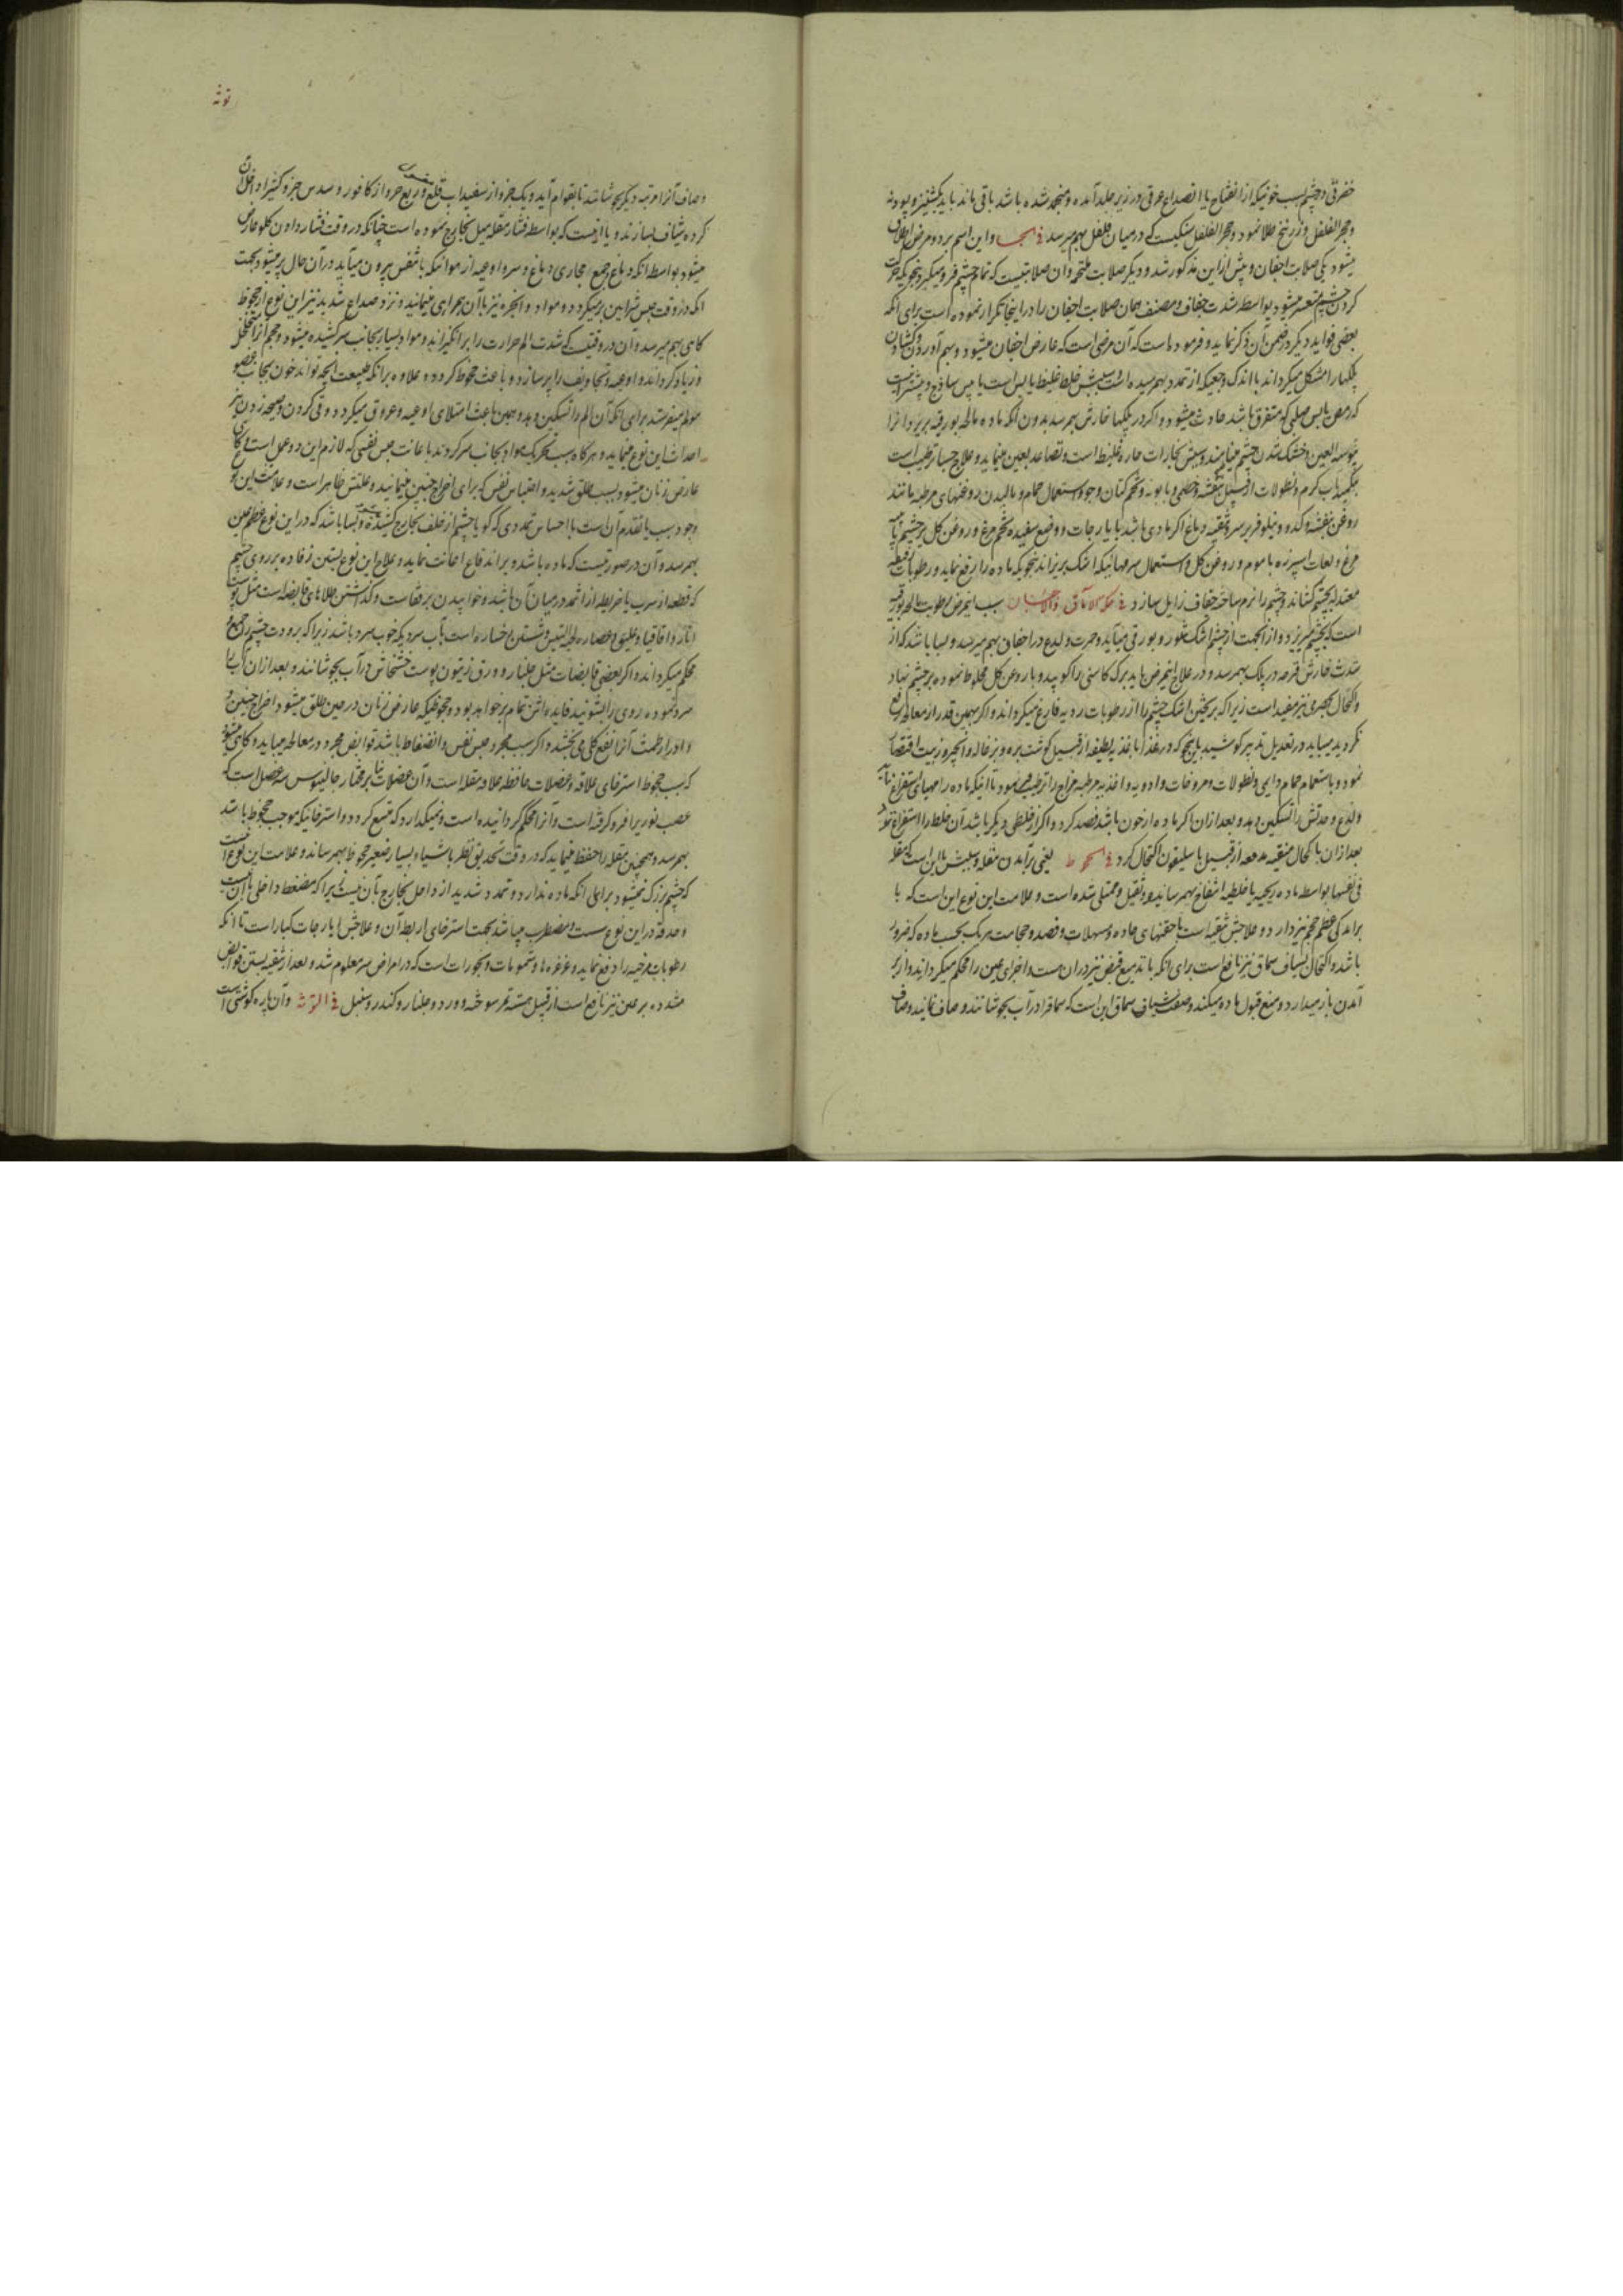 خضرتی در چشم بسبب خونیکه از انفتاح یا انصداع عرقی در زیر جلد آمده و منجمد شده باشد باقی ماند باید بکشنیز و پودنه
و حجر الفلفل و زرنیخ طلا نمود و حجر الفلفل سنگیست که در میان فلفل بهم میرسد فی الجسا و این اسم بر دو مرض اطلاق
میشود یکی صلابت اجفان و پیش ازین مذکور شد و دیگر صلابت ملتحمه و آن صلابتیست که تمام چشم فرو میگیرد بنحویکه حرکت
کردن چشم متعسر میشود بواسطه شدت جفاف و مصنف همان صلابت اجفان را در اینجا تکرار نموده است برای آنکه
بعضی فواید دیگر در ضمن آن ذکر نماید و فرموده است که آن مرضی است که عارض اجفان میشود و بهم آوردن و گشادن
پلکها را مشکل میگرداند با اندک وجعیکه از تمدد بهم رسیده است سببش خلط غلیظ یابس است یا یبس ساذج و بیشتر اینست
که رمص یابس صلبی که متفرق باشد حادث میشود و اگر در پلکها خارش بهم رسد بدون آنکه ماده مالحه بورقیه بریزد آنرا
یبوسة العین و خشک شدن چشم مینامند و سببش بخارات حاره غلیظ است و تصاعد بعین مینماید و علاج جسا ترطیب است
بتکمید بآب گرم و نطولات از قبیل بنفشه و خطمی و بابونه و تخم کتان و جو و استعمال حمام و مالیدن روغنهای مرطبه مانند
روغن بنفشه و کدو و نیلوفر بر سر و تنقیه دماغ اگر مادی باشد بایارجات و وضع سفیده تخم مرغ و روغن گل بر چشم یا پیه
مرغ و لعاب اسپرزه با موم و روغن گل و استعمال سرمهائیکه اشک بریزاند بنحویکه ماده را رفع نماید و رطوبات لطیفه
معتدله بچشم کشاند و چشم را نرم ساخته جفاف زایل سازد فی حکة الآماق والاجفان سبب این مرض رطوبت مالحه بورقیه
است که بچشم میریزد و از آنجهت از چشم اشک شور و بورقی میآید و حمرت و لدغ در اجفان بهم میرسد و بسا باشد که از
شدت خارش قرحه در پلک بهم رسد و در علاج این مرض باید برک کاسنی را کوبید و با روغن گل مخلوط نموده بر چشم نهاد
و اکتحال بحصرمی نیز مفید است زیرا که بریختن اشک چشم را از رطوبات ردیه فارغ میگرداند و اگر بهمین قدر از معالجه رفع
نگردید میباید در تعدیل تدبیر کوشید بایننحو که در غذا باغذیه لطیفه از قبیل گوشت بره و بزغاله و آنچه زودتر است اقتصار
نمود و باستحمام حمام دایمی و نطولات و مروخات و ادویه و اغذیه مرطبه مزاج را ترطیب نمود تا اینکه ماده را مهیای استفراغ نماید
و لدغ و حدتش را تسکین دهد و بعد از آن اگر ماده از خون باشد فصد کرد و اگر از خلطی دیگر باشد آن خلط را استفراغ نمود
بعد از آن باکحال منقیه مدمعه از قبیل باسلیقون اکتحال کرد فی الجحوظ یعنی برآمدن مقله و سببش یا این است که مقله
فی نفسها بواسطه ماده ریحیه یا خلطیه انتفاخ بهم رسانیده و ثقیل و ممتلی شده است و علامت این نوع این است که با
برآمدگی عظم حجم نیز دارد و علاجش تنقیه است باحقنهای حاده و مسهلات و فصد و حجامت هر یک بحسب ماده که ضرور
باشد و اکتحال بشیاف سماق نیز نافع است برای آنکه با تدبیغ قبض نیز در آن هست و اجزای عین را محکم میگرداند و از بر
آمدن باز میدارد و منع قبول ماده میکند و صفت شیاف سماق این است که سماق را در آب بجوشانند و صاف نمایند و صاف

توثه
و صاف آنرا مرتبه دیگر بجوشانند تا بقوام آید و یک جزو از سفیداب قلعی و ربع جزو از کافور و سدس جزو کتیرا داخل آن
کرده شیاف بسازند و یا اینست که بواسطه فشار مقله میل بخارج نموده است چنانکه در وقت فشار دادن گلو عارض
میشود بواسطه آنکه دماغ و جمیع مجاری دماغ و سر و اوعیه از هوائیکه با تنفس بیرون میآید در آن حال پر میشود بجهت
آنکه در وقت حبس شرایین بر میگردد و مواد و ابخره نیز باآن همراهی مینمایند و نزد صداع شدید نیز این نوع از جحوظ
گاهی بهم میرسد و آن در وقتیست که شدت الم حرارت را برانگیزاند و مواد بسیار بجانب سر کشیده میشود و حجم آنرا تخلخل
و زیاد گرداند و اوعیه و تجاویف را پر سازد و باعث جحوظ گردد و علاوه بر آنکه طبیعت آنچه تواند خون بجانب عضو
مولم میفرستد برای آنکه آن الم را تسکین دهد و همین باعث امتلای اوعیه و عروق میگردد و قی کردن و صیحه زدن نیز
احداث این نوع مینماید و هرگاه سبب تحریک مواد بجانب سر گردند باعانت حبس نفسی که لازم این دو عمل است و گاهی
عارض زنان میشود بسبب طلق شدید و احتباس نفس که برای اخراج جنین مینمایند و علتش ظاهر است و علامت این نوع
وجود سبب ماتقدم آن است با احساس تمددی که گویا چشم از خلف بخارج کشیده میشود و بسا باشد که در این نوع عظم عین
بهم رسد و آن در صورتیست که ماده باشد و بر اندفاع اعانت نماید و علاج این نوع بستن رفاده بر روی چشم
که قطعه از سرب یا خریطه از اثمد در میان آن باشد و خوابیدن بر قفاست و گذاشتن طلاهای قابضه است مثل پوست
انار و اقاقیا و علیق و عصاره لحیة التیس و شستن رخساره است بآب سردیکه خوب سرد باشد زیرا که برودت چشم را جمع و
محکم میگرداند و اگر بعضی قابضات مثل جلنار و ورق زیتون پوست خشخاش در آب بجوشانند و بعد از آن آب را
سرد نموده روی را بشویند فایده اش تمام تر خواهد بود و جحوظیکه عارض زنان در حین طلق میشود اخراج جنین
و ادرار طمث آنرا نفع کلی می بخشد و اگر سبب مجرد حبس نفس و انضغاط باشد قوابض مجرد در معالجه میباید و گاهی میشود
که سبب جحوظ استرخای علاقه و عضلات حافظه علاقه مقله است و آن عضلات بنا بر مختار جالینوس سه عضل است که
عصب نوری را فرو گرفته است و آنرا محکم گردانیده است و نمیگذارد که متسع گردد و استرخائیکه موجب جحوظ باشد
بهم رسد و همچنین مقله را حفظ مینماید که در وقت تحدیق نظر باشیاء بسیار صغیر جحوظ بهم رساند و علامت این نوع آنست
که چشم بزرگ نمیشود برای آنکه ماده ندارد و تمدد شدید از داخل بخارج باآن نیست زیرا که مضغط داخلی باآن نیست
و حدقه در این نوع سست و مضطرب میباشد بجهت استرخای اربطه آن و علاجش ایارجات کبار است تا آنکه
رطوبات مرخیه را دفع نماید و غرغره‌ها و شمومات و بخورات است که در امراض سر معلوم شد و بعد از تنقیه بستن قوابض
مشدده بر عین نیز نافع است از قبیل هسته تمر سوخته و ورد و جلنار و کندر و سنبل فی التوثه و آن پاره گوشتی است